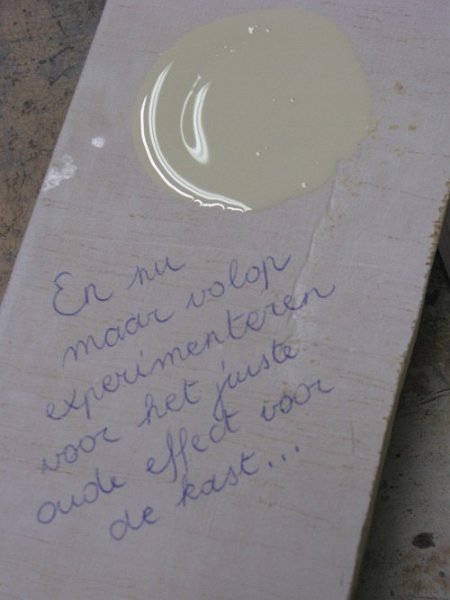 En nu
maar volop
experimenteren
voor het juiste
oude effect voor
de kast...